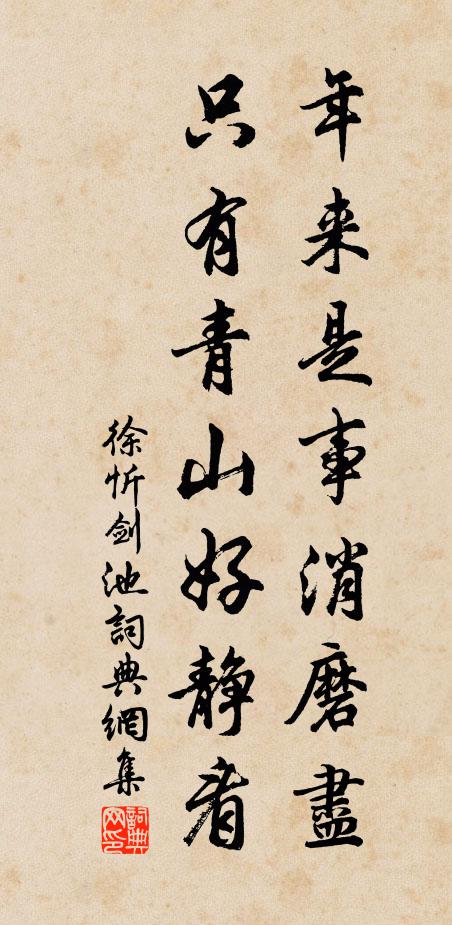 年来是事消磨盡
只有青山好静看
徐忻剑池詞典網集
詞典网印